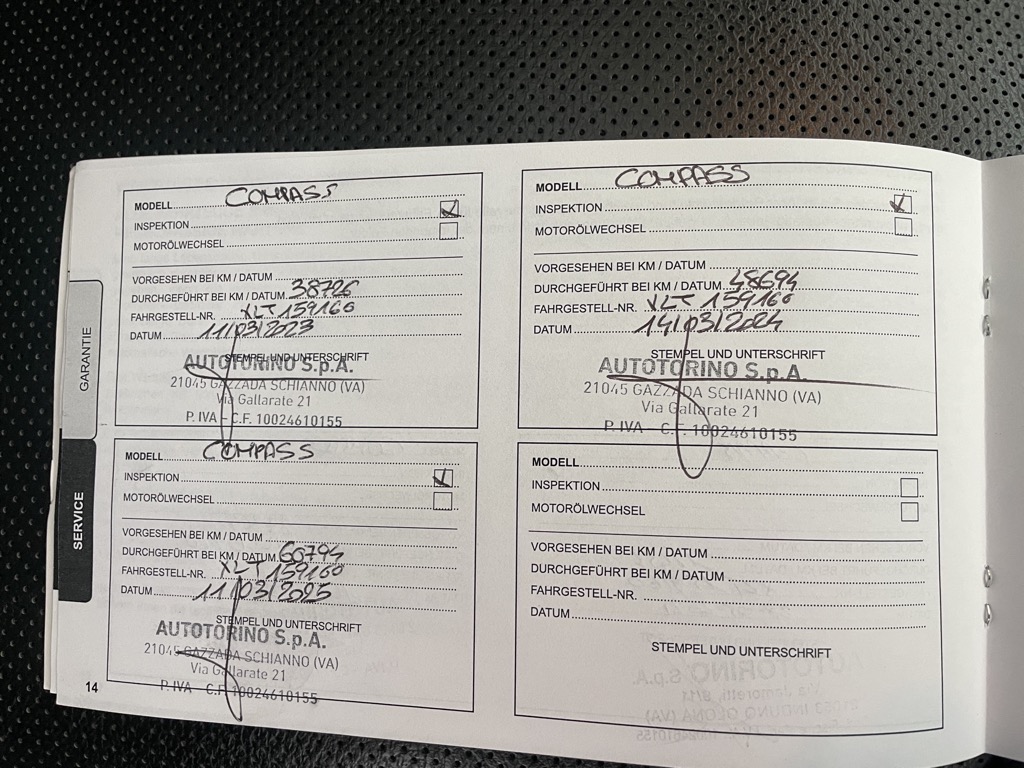 MODELL COMPASS
INSPEKTION
MOTORÖLWECHSEL
VORGESEHEN BEI KM / DATUM
DURCHGEFÜHRT BEI KM / DATUM 38726
FAHRGESTELL-NR. XLT 159160
DATUM 11/03/2023
STEMPEL UND UNTERSCHRIFT
AUTOTORINO S.p.A.
21045 GAZZADA SCHIANNO (VA)
Via Gallarate 21
P. IVA - C.F. 10024610155
MODELL COMPASS
INSPEKTION
MOTORÖLWECHSEL
VORGESEHEN BEI KM / DATUM
DURCHGEFÜHRT BEI KM / DATUM 48694
FAHRGESTELL-NR. XLT 159160
DATUM 14/03/2024
STEMPEL UND UNTERSCHRIFT
AUTOTORINO S.p.A.
21045 GAZZADA SCHIANNO (VA)
Via Gallarate 21
P. IVA - C.F. 10024610155
MODELL COMPASS
INSPEKTION
MOTORÖLWECHSEL
VORGESEHEN BEI KM / DATUM
DURCHGEFÜHRT BEI KM / DATUM 60794
FAHRGESTELL-NR. XLT 159160
DATUM 11/03/2025
STEMPEL UND UNTERSCHRIFT
AUTOTORINO S.p.A.
21045 GAZZADA SCHIANNO (VA)
Via Gallarate 21
P. IVA - C.F. 10024610155
MODELL
INSPEKTION
MOTORÖLWECHSEL
VORGESEHEN BEI KM / DATUM
DURCHGEFÜHRT BEI KM / DATUM
FAHRGESTELL-NR.
DATUM
STEMPEL UND UNTERSCHRIFT
GARANTIE
SERVICE
14